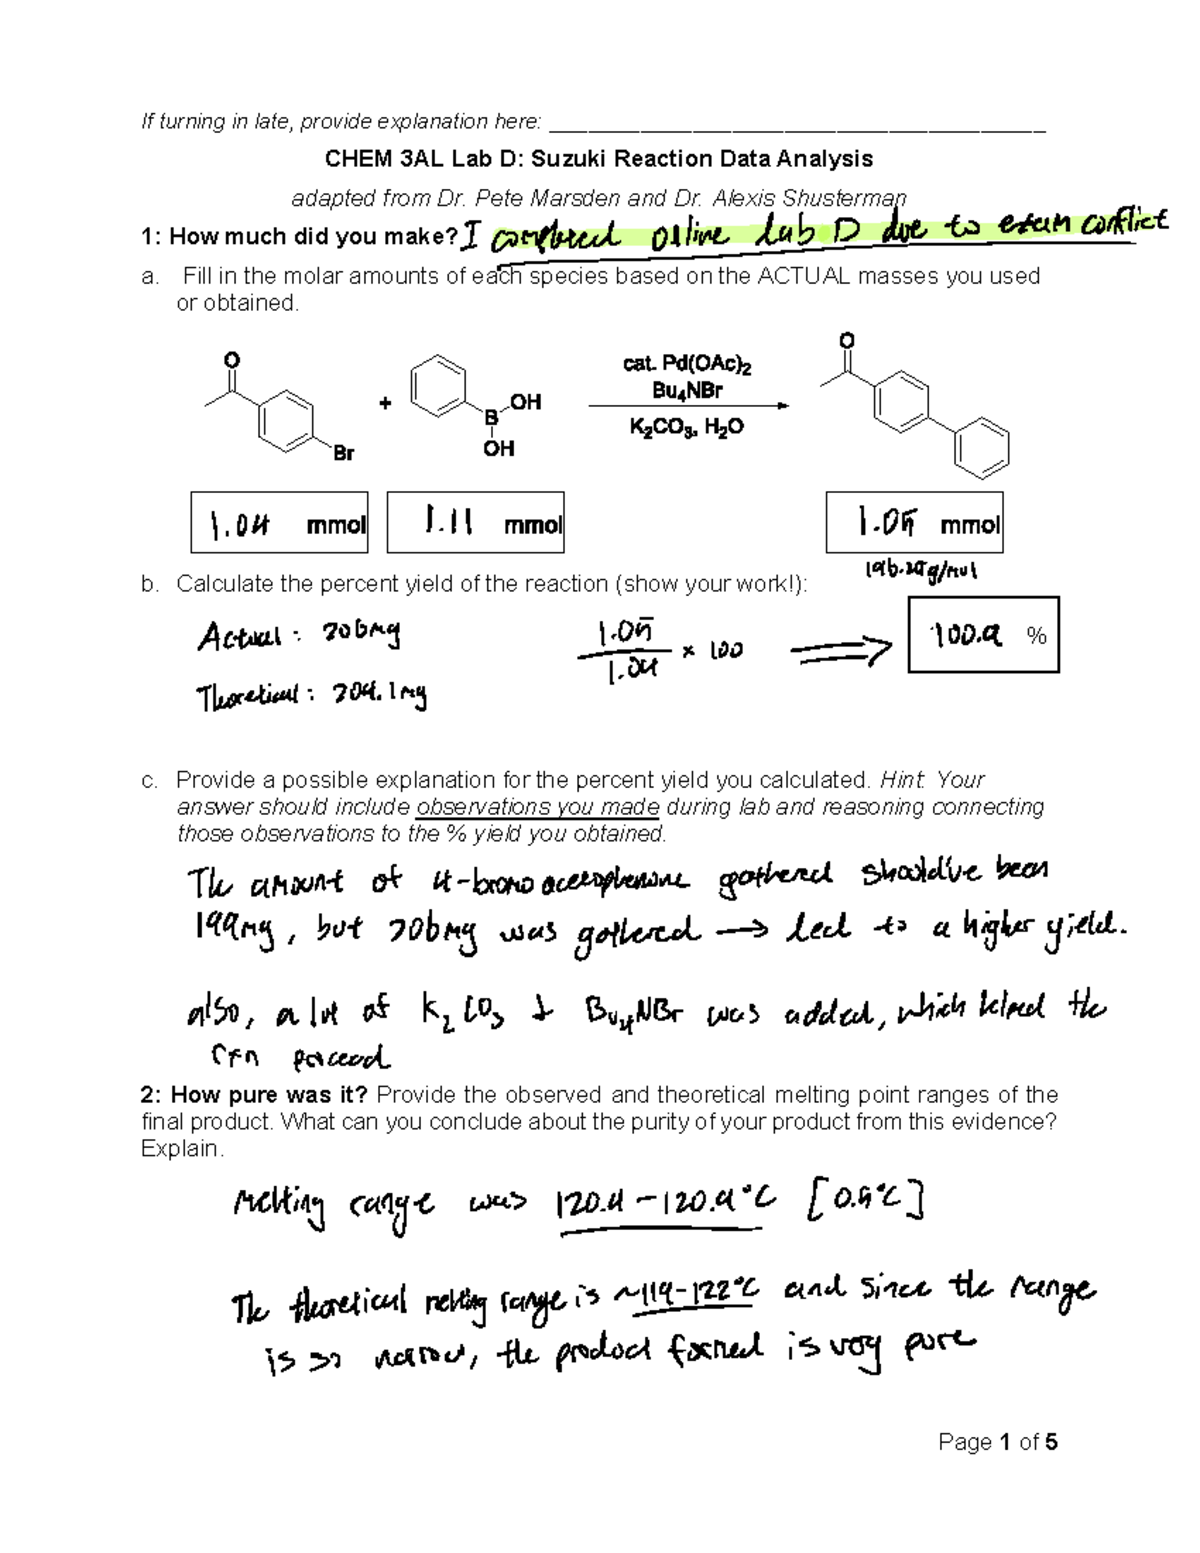 If turning in late, provide explanation here: ______________________________________
CHEM 3AL Lab D: Suzuki Reaction Data Analysis
adapted from Dr. Pete Marsden and Dr. Alexis Shusterman
1: How much did you make? I completed online lab D due to exam conflict
a. Fill in the molar amounts of each species based on the ACTUAL masses you used
or obtained.
O
Br
+
B
OH
OH
cat. Pd(OAc)2
Bu4NBr
K2CO3, H2O
O
1.04 mmol
1.11 mmol
1.05 mmol
196.25g/mol
b. Calculate the percent yield of the reaction (show your work!):
Actual: 206mg
1.05
1.04
× 100
100.9 %
Theoretical: 204.1mg
c. Provide a possible explanation for the percent yield you calculated. Hint: Your
answer should include observations you made during lab and reasoning connecting
those observations to the % yield you obtained.
The amount of 4-bromoacetophenone gathered should've been
199mg, but 206mg was gathered → led to a higher yield.
also, a lot of K2CO3 & Bu4NBr was added, which helped the
rxn proceed
2: How pure was it? Provide the observed and theoretical melting point ranges of the
final product. What can you conclude about the purity of your product from this evidence?
Explain.
Melting range was 120.4-120.9°C [0.5°C]
The theoretical melting range is ~119-122°C and since the range
is so narrow, the product formed is very pure
Page 1 of 5